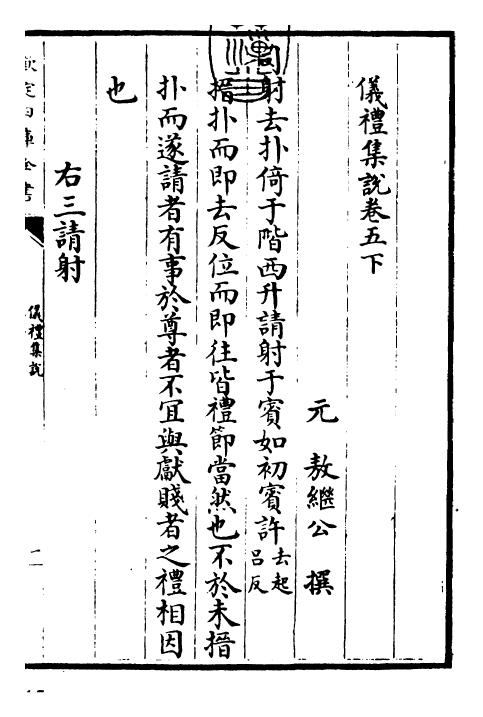 儀禮集說卷五下
元 敖繼公 撰
司射去扑倚于階西升請射于賓如初賓許去起呂反
搢扑而即去反位而即往皆禮節當然也不於未搢
扑而遂請者有事於尊者不宜與獻賤者之禮相因
也
右三請射
欽定四庫全書
儀禮集說
二